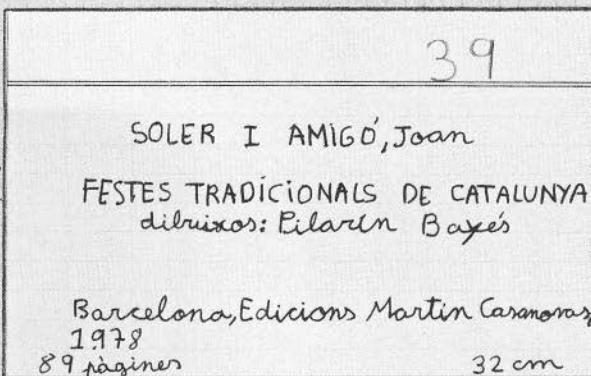 39
SOLER I AMIGÓ, Joan
FESTES TRADICIONALS DE CATALUNYA
dibuixos: Pilarín Bayés
Barcelona, Edicions Martin Casanovas,
1978
89 pàgines 32 cm